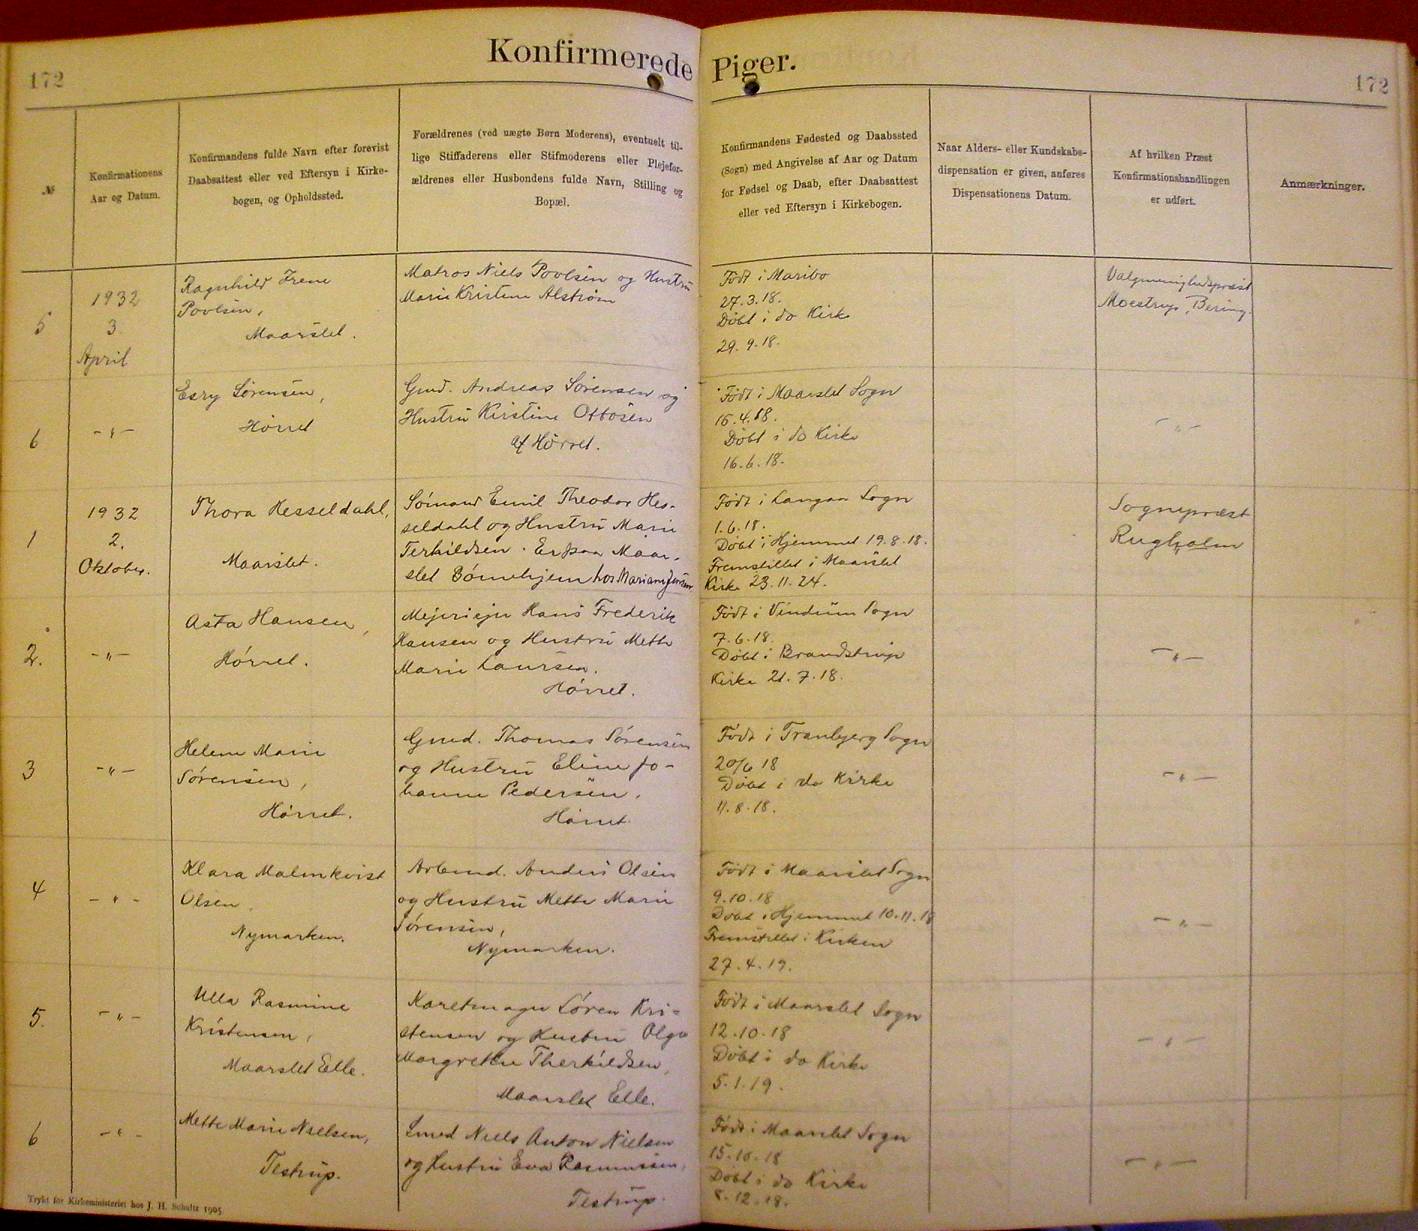 Konfirmerede Piger.
172
172
№
Konfirmationens
Aar og Datum.
Konfirmandens fulde Navn efter forevist
Daabsattest eller ved Eftersyn i Kirke-
bogen, og Opholdssted.
Forældrenes (ved uægte Børn Moderens), eventuelt til-
lige Stiffaderens eller Stifmoderens eller Plejefor-
ældrenes eller Husbondens fulde Navn, Stilling og
Bopæl.
Konfirmandens Fødested og Daabssted
(Sogn) med Angivelse af Aar og Datum
for Fødsel og Daab, efter Daabsattest
eller ved Eftersyn i Kirkebogen.
Naar Alders- eller Kundskabs-
dispensation er given, anføres
Dispensationens Datum.
Af hvilken Præst
Konfirmationshandlingen
er udført.
Anmærkninger.
5
1932
3.
April
Ragnhild Irene
Povlsen,
Maarslet.
Matros Niels Povlsen og Hustru
Marie Kristene Alstrøm
Født i Maribo
27.3.18.
Døbt i do Kirke
29.9.18.
Valgmenighedspræst
Moestrup, Bering.
6
-"-
Esry Sørensen,
Hørret
Gmd. Andreas Sørensen og
Hustru Kirstine Ottosen
af Hørret.
Født i Maarslet Sogn
16.4.18.
Døbt i do Kirke
16.6.18.
-"-
1
1932
2.
Oktober.
Thora Hesseldahl,
Maarslet.
Sømand Emil Theodor Hes-
seldahl og Hustru Marie
Terkildsen. Er paa Maar-
slet Børnehjem hos Mariane Jensen
Født i Langaa Sogn
1.6.18.
Døbt i Hjemmet 19.8.18.
Fremstillet i Maarslet
Kirke 23.11.24.
Sognepræst
Rugholm
2.
-"-
Asta Hansen,
Hørret.
Mejeriejer Hans Frederik
Hansen og Hustru Mette
Marie Laursen.
Hørret.
Født i Vindum Sogn
7.6.18.
Døbt i Brandstrup
Kirke 21.7.18.
-"-
3
-"-
Helene Marie
Sørensen,
Hørret.
Gmd. Thomas Sørensen
og Hustru Eline Jo-
hanne Pedersen,
Hørret
Født i Tranbjerg Sogn
20/6 18
Døbt i do Kirke
11.8.18.
-"-
4
-"-
Klara Malmkvist
Olsen.
Nymarken.
Arbmd. Anders Olsen
og Hustru Mette Marie
Sørensen,
Nymarken.
Født i Maarslet Sogn
9.10.18
Døbt i Hjemmet 10.11.18
Fremstillet i Kirken
27.4.19.
-"-
5.
-"-
Ulla Rasmine
Kristensen,
Maarslet Elle.
Karetmager Søren Kri-
stensen og Hustru Olga
Margrethe Therkildsen,
Maarslet Elle.
Født i Maarslet Sogn
12.10.18
Døbt i do Kirke
5.1.19.
-"-
6
-"-
Mette Marie Nielsen,
Testrup.
Smed Niels Anton Nielsen
og Hustru Eva Rasmussen,
Testrup.
Født i Maarslet Sogn
15.10.18
Døbt i do Kirke
8.12.18.
-"-
Trykt for Kirkeministeriet hos J. H. Schultz 1905